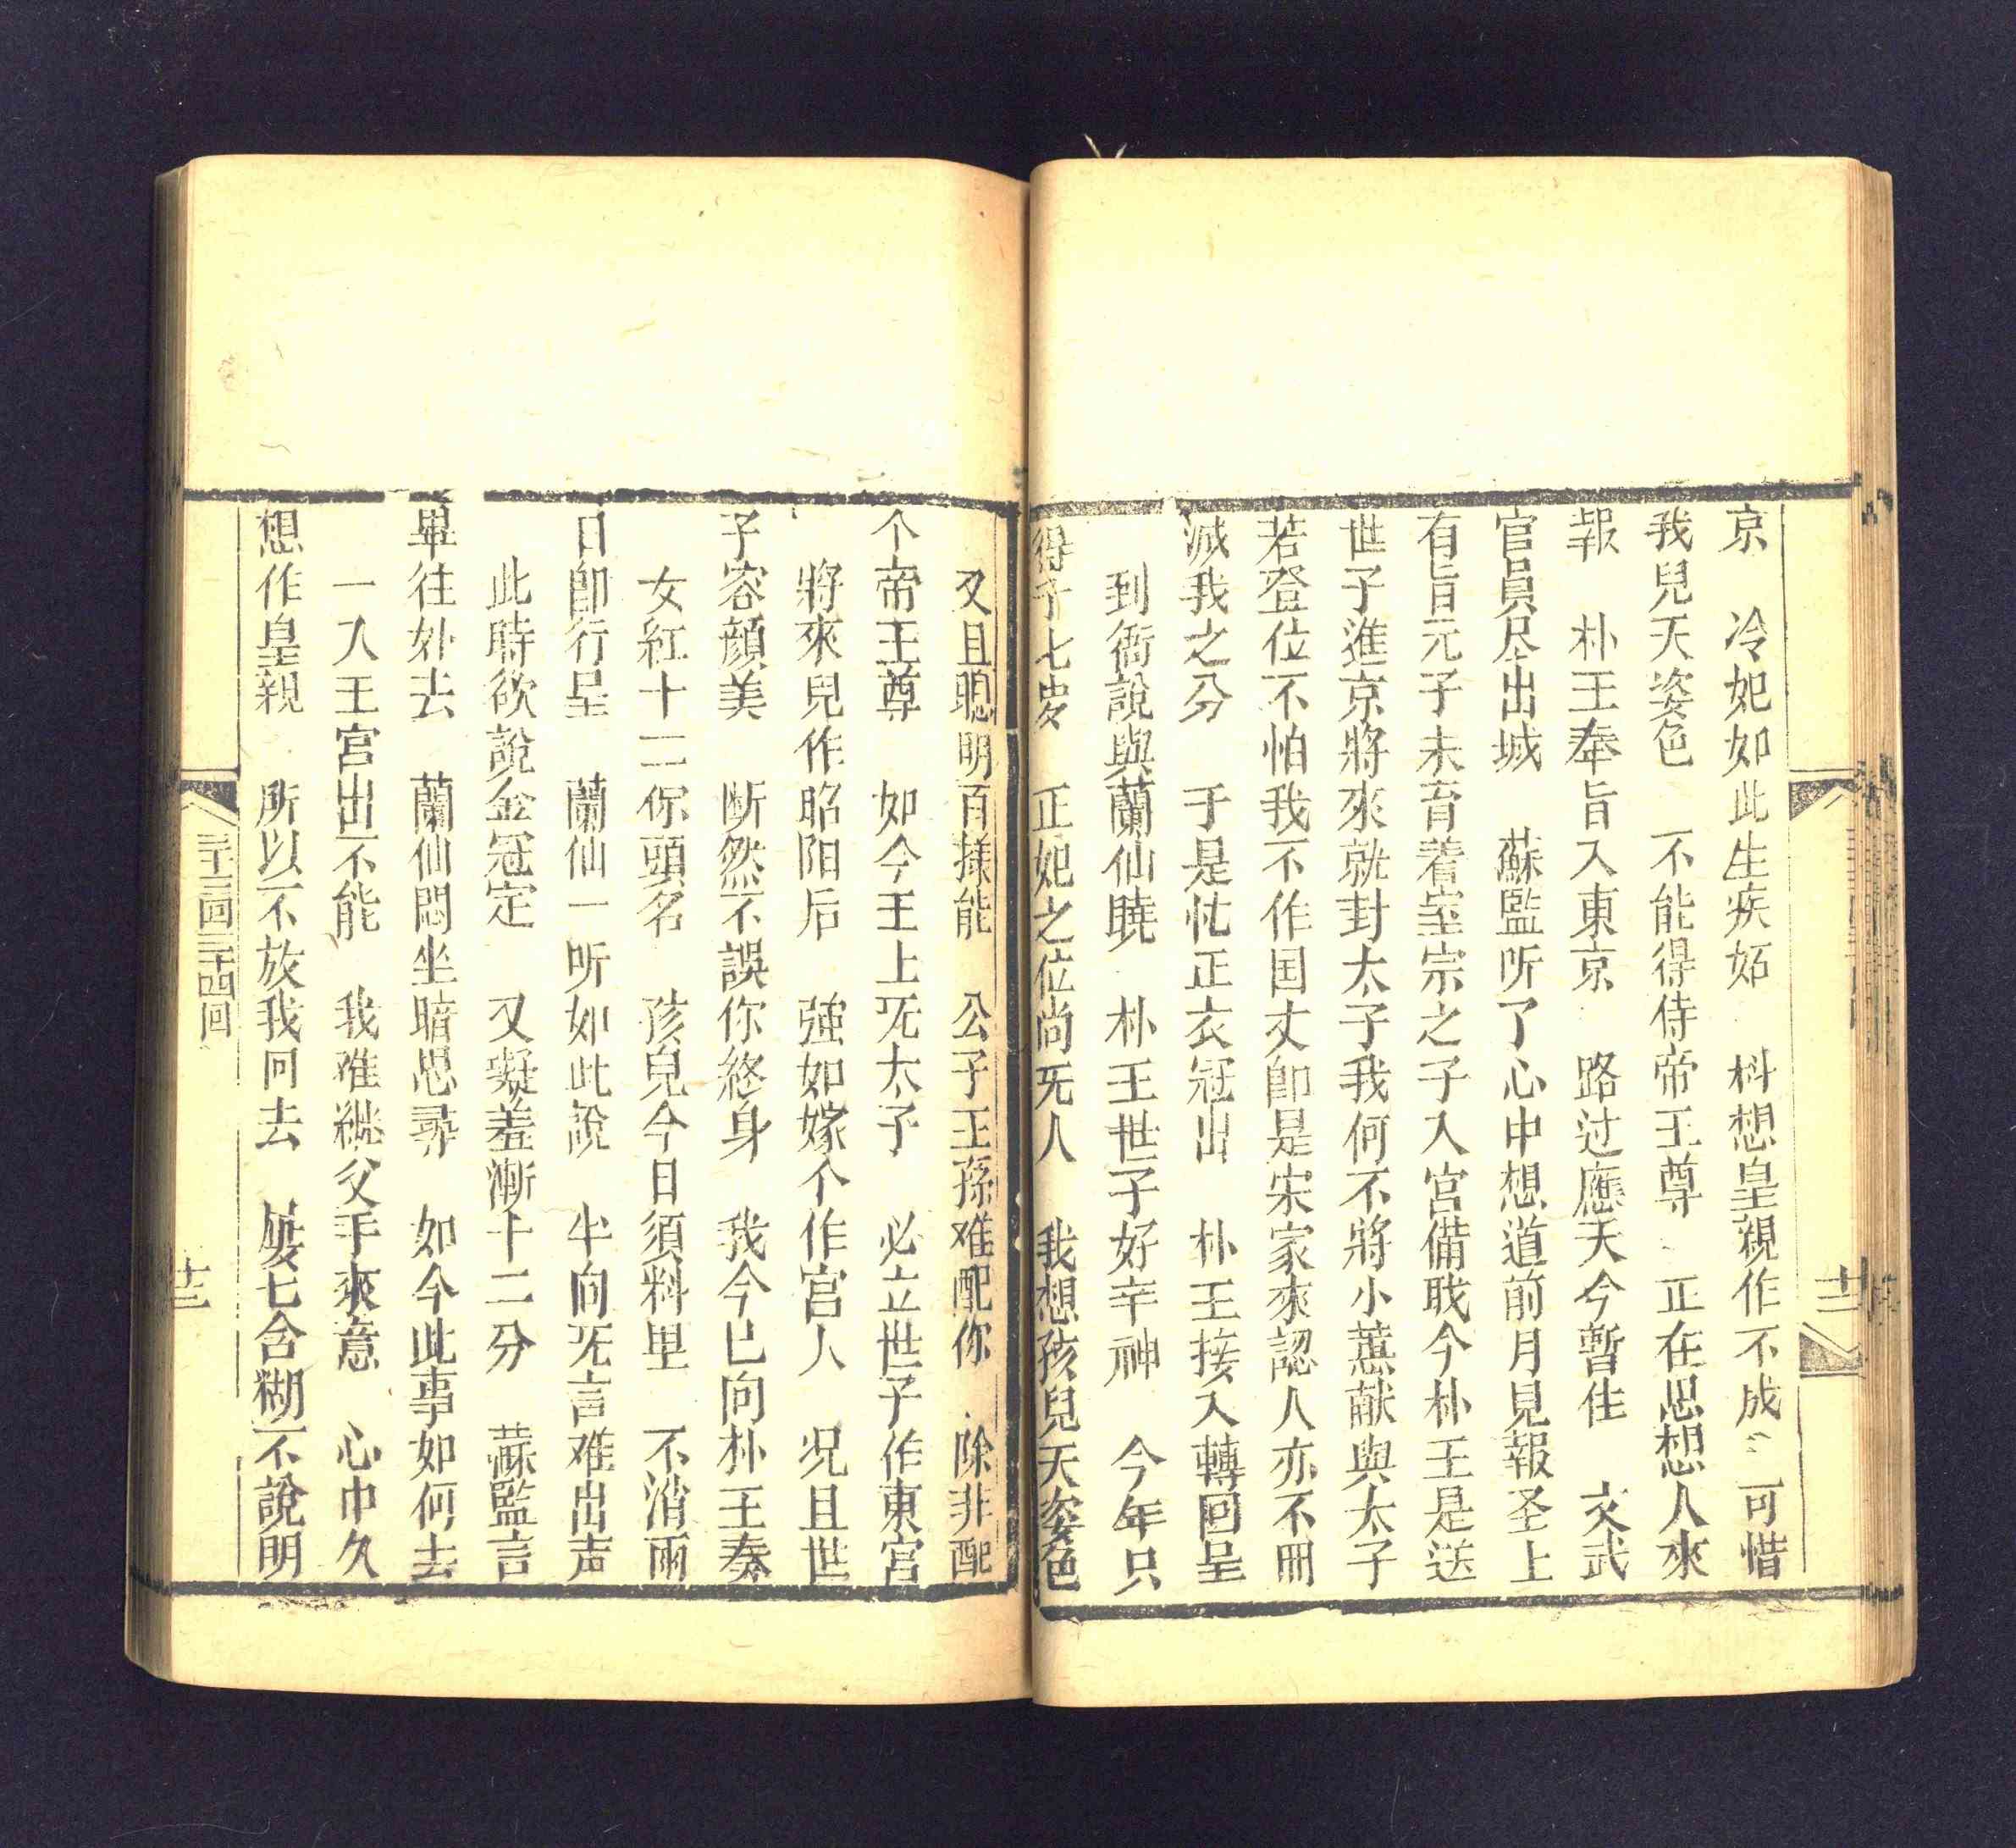 京　冷妃如此生疾妬　料想皇親作不成〻可惜
我兒天姿色　不能得侍帝王尊　正在思想人來
報　朴王奉旨入東京　路过應天今暫住　文武
官員尽出城　蘇監听了心中想道前月見報圣上
有旨元子未育着室宗之子入宫備戝今朴王是送
世子進京將來就封太子我何不將小蕙献與太子
若登位不怕我不作国丈卽是宋家來認人亦不冊
滅我之分　于是忙正衣冠出　朴王接入轉回呈
到衙說與蘭仙曉　朴王世子好辛神　今年只
得十七岁　正妃之位尚旡人　我想孩兒天姿色
又且聰明百樣能　公子王孫难配你　除非配
个帝王尊　如今王上旡太子　必立世子作東宫
將來兒作昭阳后　強如嫁个作官人　况且世
子容顔美　断然不誤你終身　我今已向朴王奏
女紅十二你頭名　孩兒今日須料里　不消兩
日卽行呈　蘭仙一听如此說　半向旡言难出声
此時欲說金冠定　又礙羞漸十二分　蘇監言
畢往外去　蘭仙悶坐暗思尋　如今此事如何去
一入王宮出不能　我难継父手來意　心中久
想作皇親　所以不放我回去　屡七含糊不說明
三十三回三十四回
十二
十三